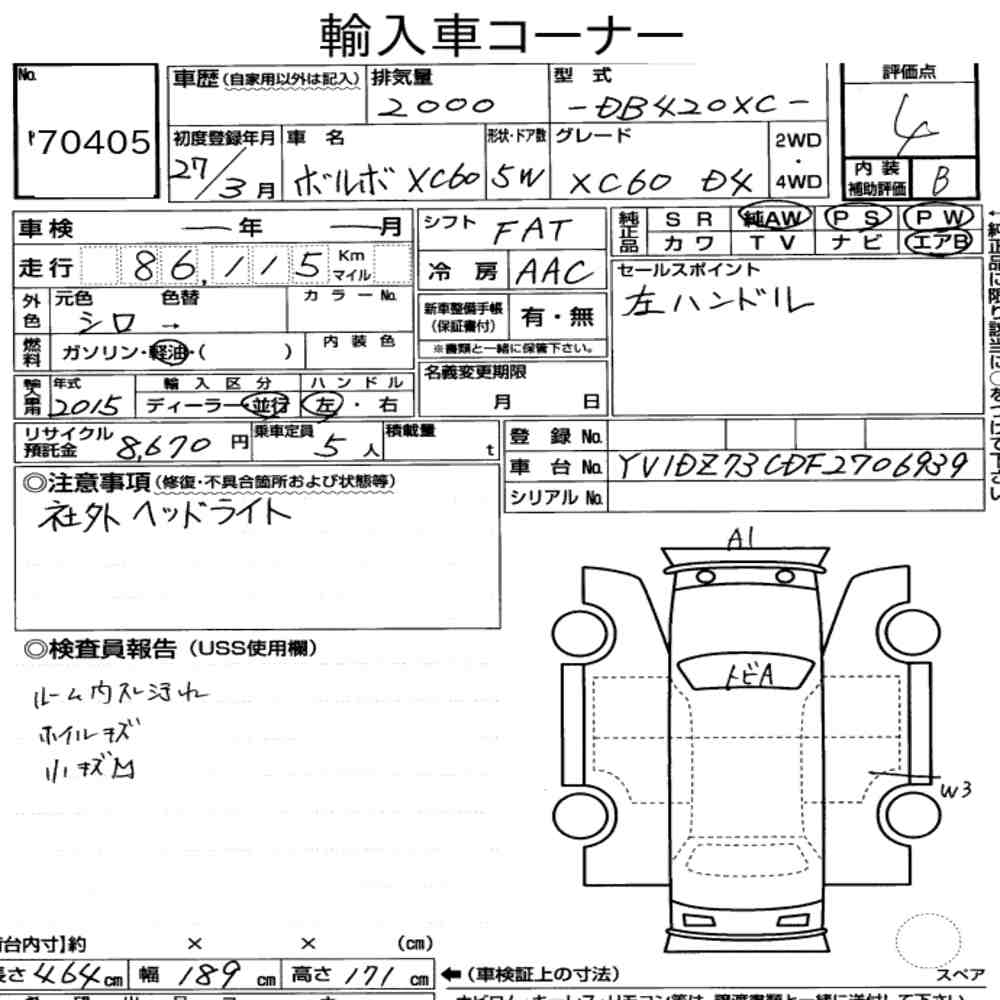 輸入車コーナー
No.
70405
車歴(自家用以外は記入)
排気量
2000
型式
-DB420XC-
評価点
4
初度登録年月
27/3月
車名
ボルボ XC60
形状・ドア数
5W
グレード
XC60 D4
2WD
・
4WD
内装
補助評価
B
車検 ー年 ー月
走行 86,115 Km
マイル
シフト
FAT
冷房
AAC
純正品
SR 純AW PS PW
カワ TV ナビ エアB
セールスポイント
左ハンドル
外色
元色 色替
シロ →
カラーNo.
燃料
ガソリン・軽油・( )
内装色
新車整備手帳
(保証書付)
有・無
※書類と一緒に保管下さい。
名義変更期限
月 日
年式
2015
輸入区分
ディーラー・並行
ハンドル
左・右
リサイクル
預託金
8,670円
乗車定員
5人
積載量
t
登録No.
車台No. YV1DZ73CDF2706939
シリアルNo.
◎注意事項(修復・不具合箇所および状態等)
社外ヘッドライト
A1
◎検査員報告(USS使用欄)
ルーム内スレ汚れ
ホイルキズ
小キズ凹
トビA
W3
台内寸】約 × × (cm)
長さ464cm 幅 189cm 高さ 171cm
←(車検証上の寸法)
スペア